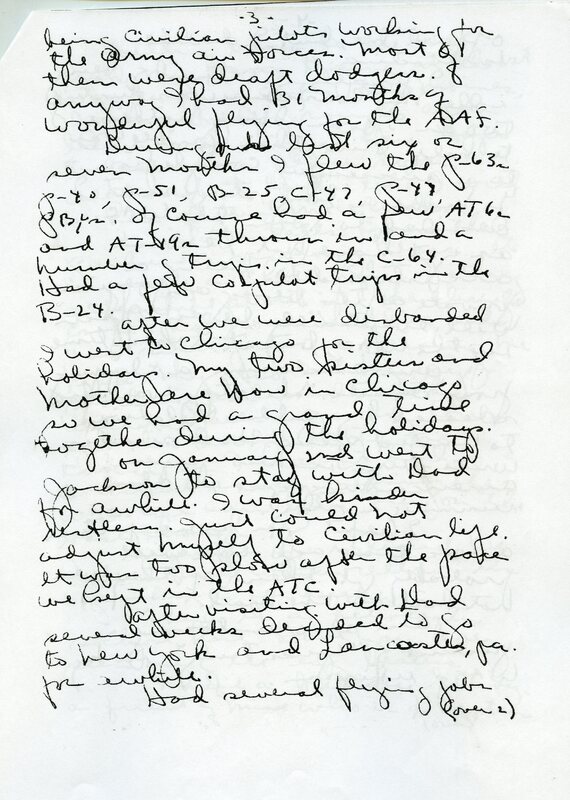 -3-
being civilian pilots working for
the Army Air Forces. Most of
them were draft dodgers.
anyway I had months of
wonderful flying for the AAF.
During last six or
seven months I flew the P-63s
P-40, P-51, B-25, C-47, P-47,
Of course had a few AT6s
and AT-19s thrown in and a
number of trips in the C-64.
Had a few copilot trips in the
B-24.
After we were disbanded
I went to Chicago for the
holidays. My two sisters and
Mother are now in Chicago
so we had a grand time
together during the holidays.
On January 2nd went to
Jackson to stay with Dad
for awhile. I was kinder
restless. Just could not
adjust myself to civilian life.
It was too slow after the pace
we kept in the ATC.
After visiting with Dad
several weeks decided to go
to New York and Lancaster, Pa.
for awhile.
Had several flying jobs
(over 2)